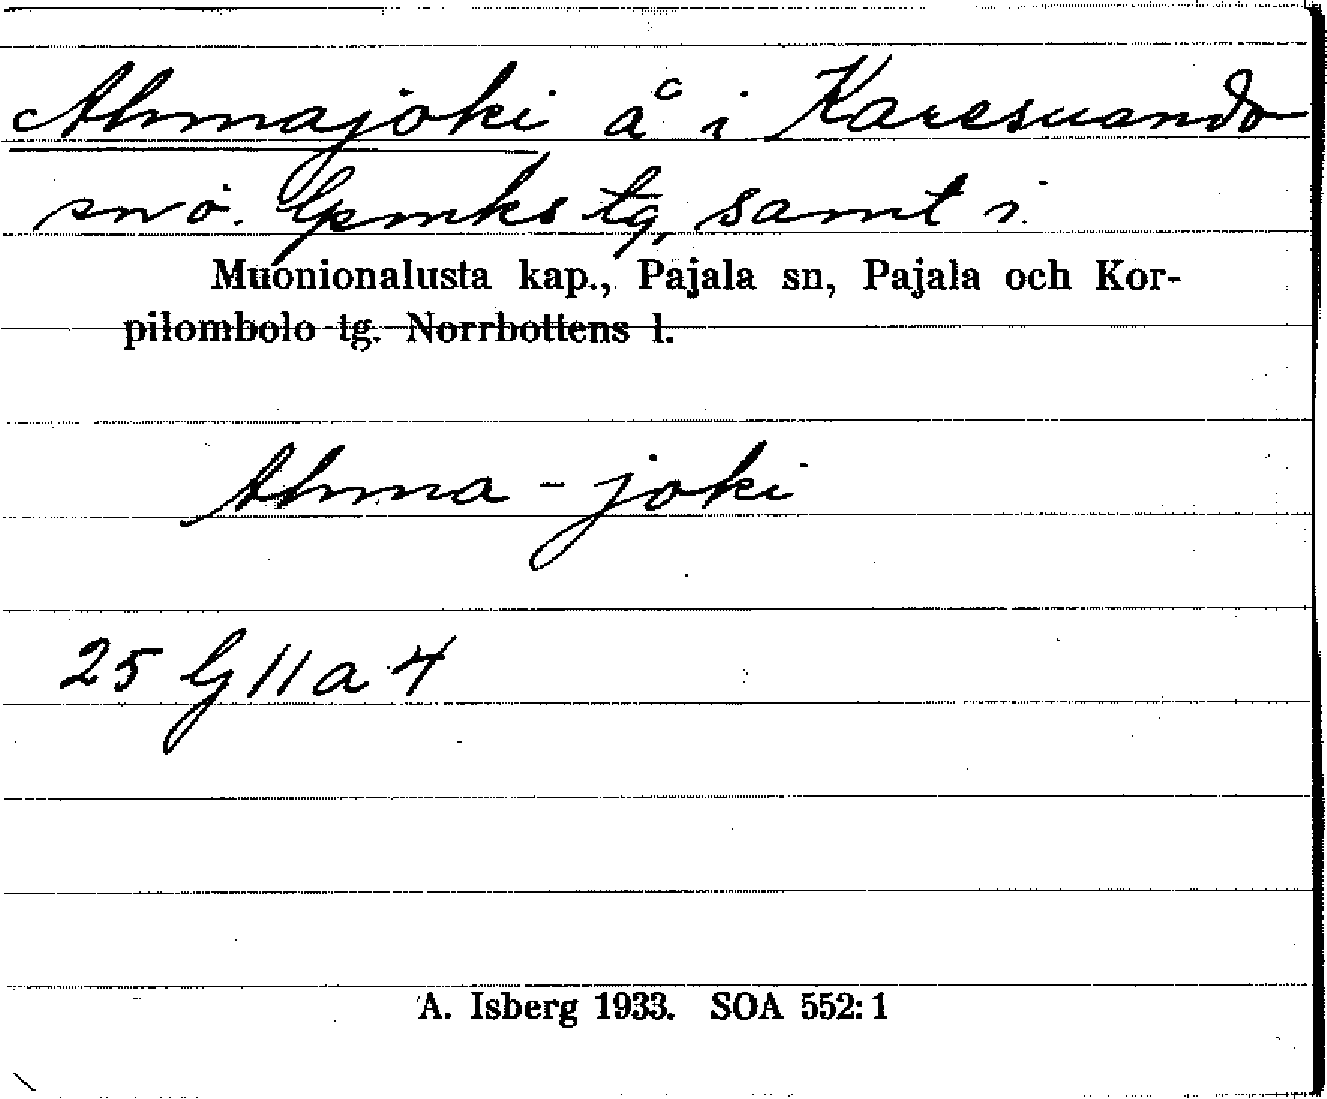 Ahmajoki å i Karesuando
sn o. Gpmks tg, samt i
Muonionalusta kap., Pajala sn, Pajala och Kor-
pilombolo tg. Norrbottens l.
Ahma-joki
25 G 11 a 4
A. Isberg 1933. SOA 552:1